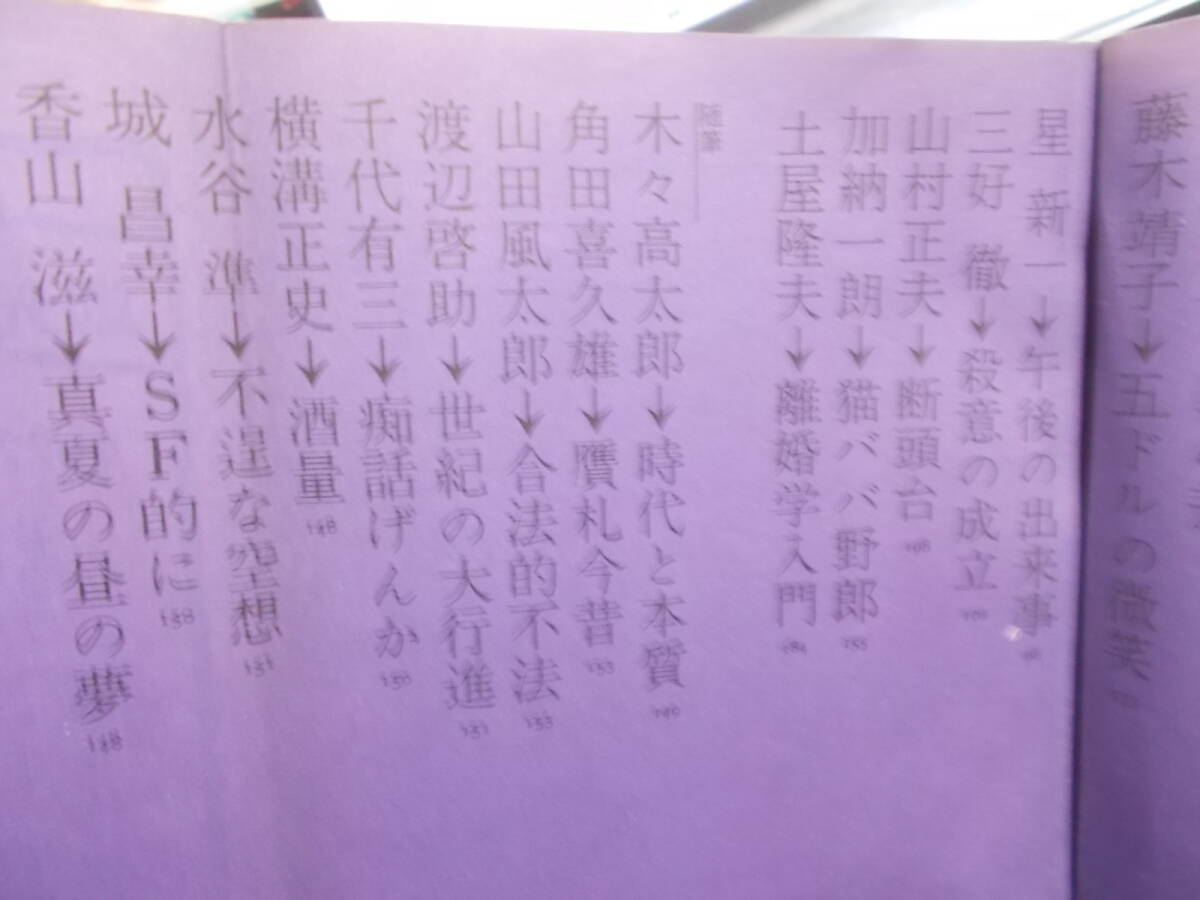 藤木靖子→五ドルの微笑
星 新一→午後の出来事
三好 徹→殺意の成立
山村正夫→断頭台
加納一朗→猫ババ野郎
土屋隆夫→離婚学入門
随筆
木々高太郎→時代と本質
角田喜久雄→贋札今昔
山田風太郎→合法的不法
渡辺啓助→世紀の大行進
千代有三→痴話げんか
横溝正史→酒量
水谷 準→不逞な空想
城 昌幸→SF的に
香山 滋→真夏の昼の夢